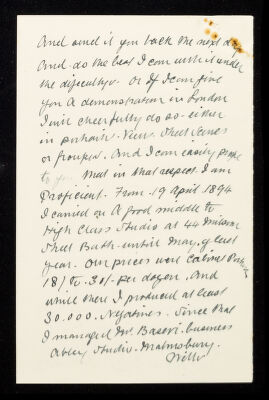 And send it you back the next day
And do the best I can with it under
the difficulty. or If I can give
you A demonstration in London
I will cheerfully do so. either
in portrait. View. Street Scenes
or groups. And I can easily prove
to you that in that respect I am
Proficient. From 19 April 1894
I carried on A good middle to
High Class Studio at 44 Milsom
Street Bath until May, of last
year. Our prices were Cabinet
18/ to 30/- per dozen, And
while there I produced at least
30.000. Negatives. Since that
I managed Mr. Baseri. business
Abbey Studio. Malmesbury.
Wilts